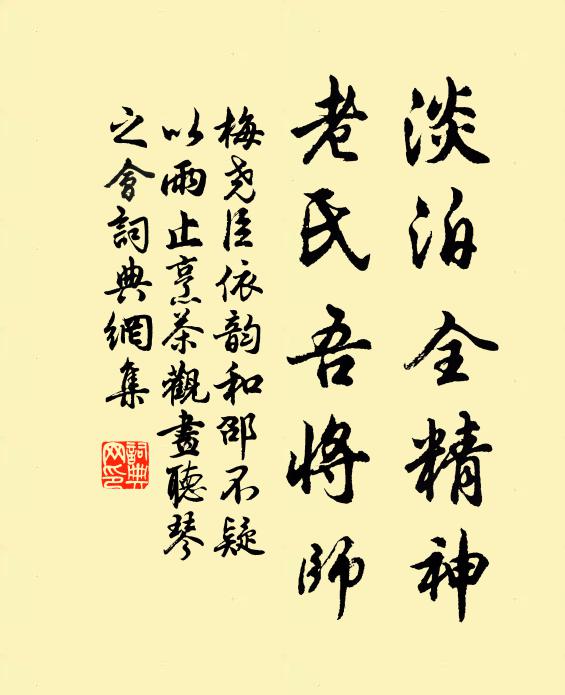 淡泊全精神
老氏吾將師
梅堯臣依韵和邵不疑
以雨止烹茶觀畫聽琴
之會詞典網集
詞典
网印